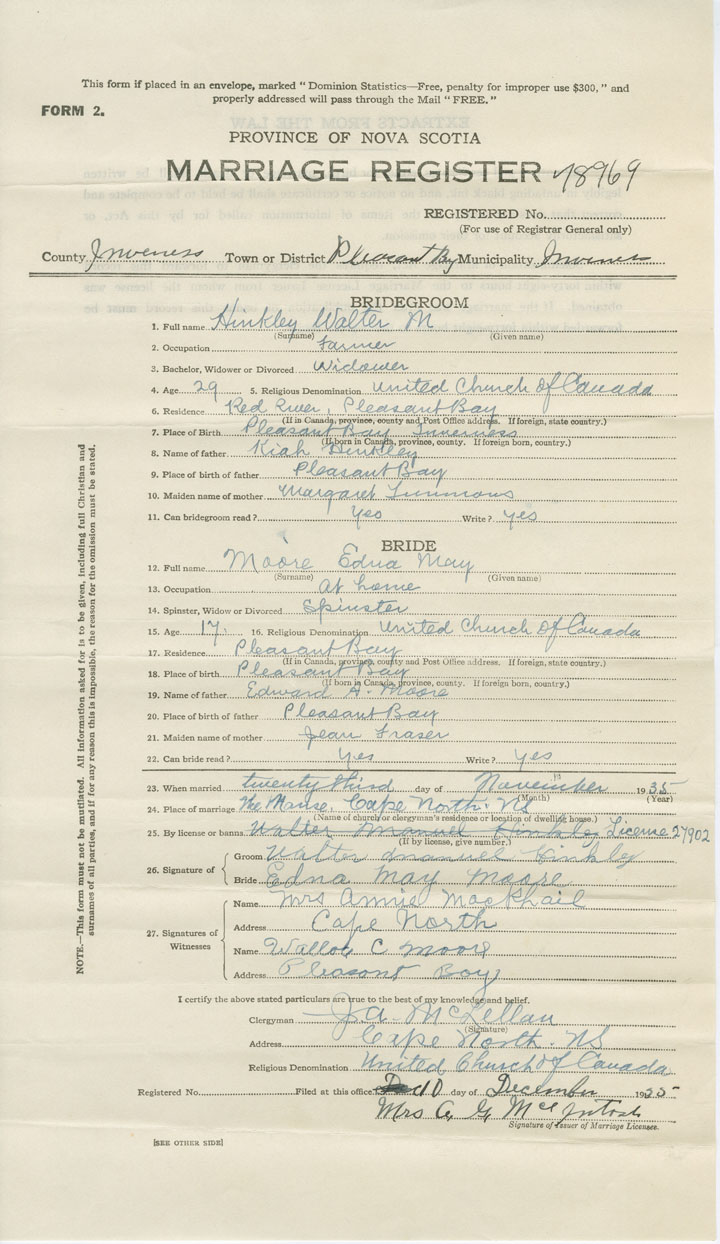 This form if placed in an envelope, marked "Dominion Statistics—Free, penalty for improper use $300," and
properly addressed will pass through the Mail "FREE."
FORM 2.
PROVINCE OF NOVA SCOTIA
MARRIAGE REGISTER 78969
REGISTERED No.
(For use of Registrar General only)
County Inverness Town or District Pleasant Bay Municipality Inverness
BRIDEGROOM
1. Full name Hinkley Walter M
(Surname) (Given name)
2. Occupation Farmer
3. Bachelor, Widower or Divorced Widower
4. Age 29 5. Religious Denomination United Church of Canada
6. Residence Red River, Pleasant Bay
(If in Canada, province, county and Post Office address. If foreign, state country.)
7. Place of Birth Pleasant Bay Inverness
(If born in Canada, province, county. If foreign born, country.)
8. Name of father Kiah Hinkley
9. Place of birth of father Pleasant Bay
10. Maiden name of mother Margaret Timmons
11. Can bridegroom read? Yes Write? yes
BRIDE
12. Full name Moore Edna May
(Surname) (Given name)
13. Occupation at home
14. Spinster, Widow or Divorced Spinster
15. Age 17. 16. Religious Denomination United Church of Canada
17. Residence Pleasant Bay
(If in Canada, province, county and Post Office address. If foreign, state country.)
18. Place of Birth Pleasant Bay
(If born in Canada, province, county. If foreign born, country.)
19. Name of father Edward A. Moore
20. Place of birth of father Pleasant Bay
21. Maiden name of mother Jean Fraser
22. Can bride read? Yes Write? Yes
23. When married twenty third day of November 1935
(Month) (Year)
24. Place of marriage The Manse, Cape North. NS
(Name of church or clergyman's residence or location of dwelling house.)
25. By license or banns Walter Manuel Hinkley License 27902
(If by license, give number.)
26. Signature of
Groom Walter Manuel Hinkley
Bride Edna May Moore
27. Signatures of Witnesses
Name Mrs Annie MacPhail
Address Cape North
Name C Moore
Address Pleasant Bay
I certify the above stated particulars are true to the best of my knowledge and belief.
Clergyman J. A. McLellan
(Signature)
Address Cape North. NS
Religious Denomination United Church of Canada
Registered No. Filed at this office 10 day of December 1935
Mrs A. G. McIntosh
Signature of Issuer of Marriage Licenses.
[SEE OTHER SIDE]
NOTE.—This form must not be mutilated. All information asked for is to be given, including full Christian and
surnames of all parties, and if for any reason this is impossible, the reason for the omission must be stated.